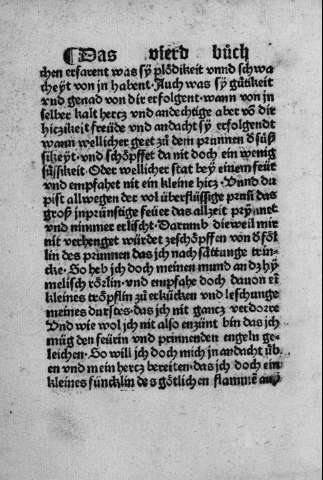 ¶Das vierd bůch
chen erfarent was sy̆ plo̊dikeit vnnd schwa
cheyt von jn habent. Auch was sy̆ gůtikeit
vnd genad von dir erfolgent. wann von jn
selber kalt hertz vnd andechtige aber vō dir
hitzikeit freüde vnd andacht sy̆ erfolgendt
wann wellicher geet zů dem prunnen d̄ süß
sikeyt. vnd scho̊pffet da nit doch ein wenig
süssikeit Oder wellicher stat bey einem feür
vnd empfahet nit ein kleine hitz. Vnnd du
pist allwegen der vol überflüssige prun̄ das
groß inprünstige feüer das allzeit prȳnnet
vnd nimmer erlischt. Darumb die weil mir
nit verhenget würdet zeschöpffen von d̄ fo̊l
lin des prunnen das ich nach sättunge trin-
cke. So heb ich doch meinen mund an dz hy̆
melisch ro̊rlin. vnd empfahe doch dauon eī
kleines tro̊pflin zů erkücken vnd leschunge
meines durstes. das ich nit gantz verdorre
Vnd wie wol ich nit also enzünt bin das ich
müg den feürin vnd prinnenden engeln ge-
leichen. So will ich doch mich in andacht üb̄
en vnd mein hertz bereiten. das ich doch ein
kleines füncklin des go̊tlichen flammē auß